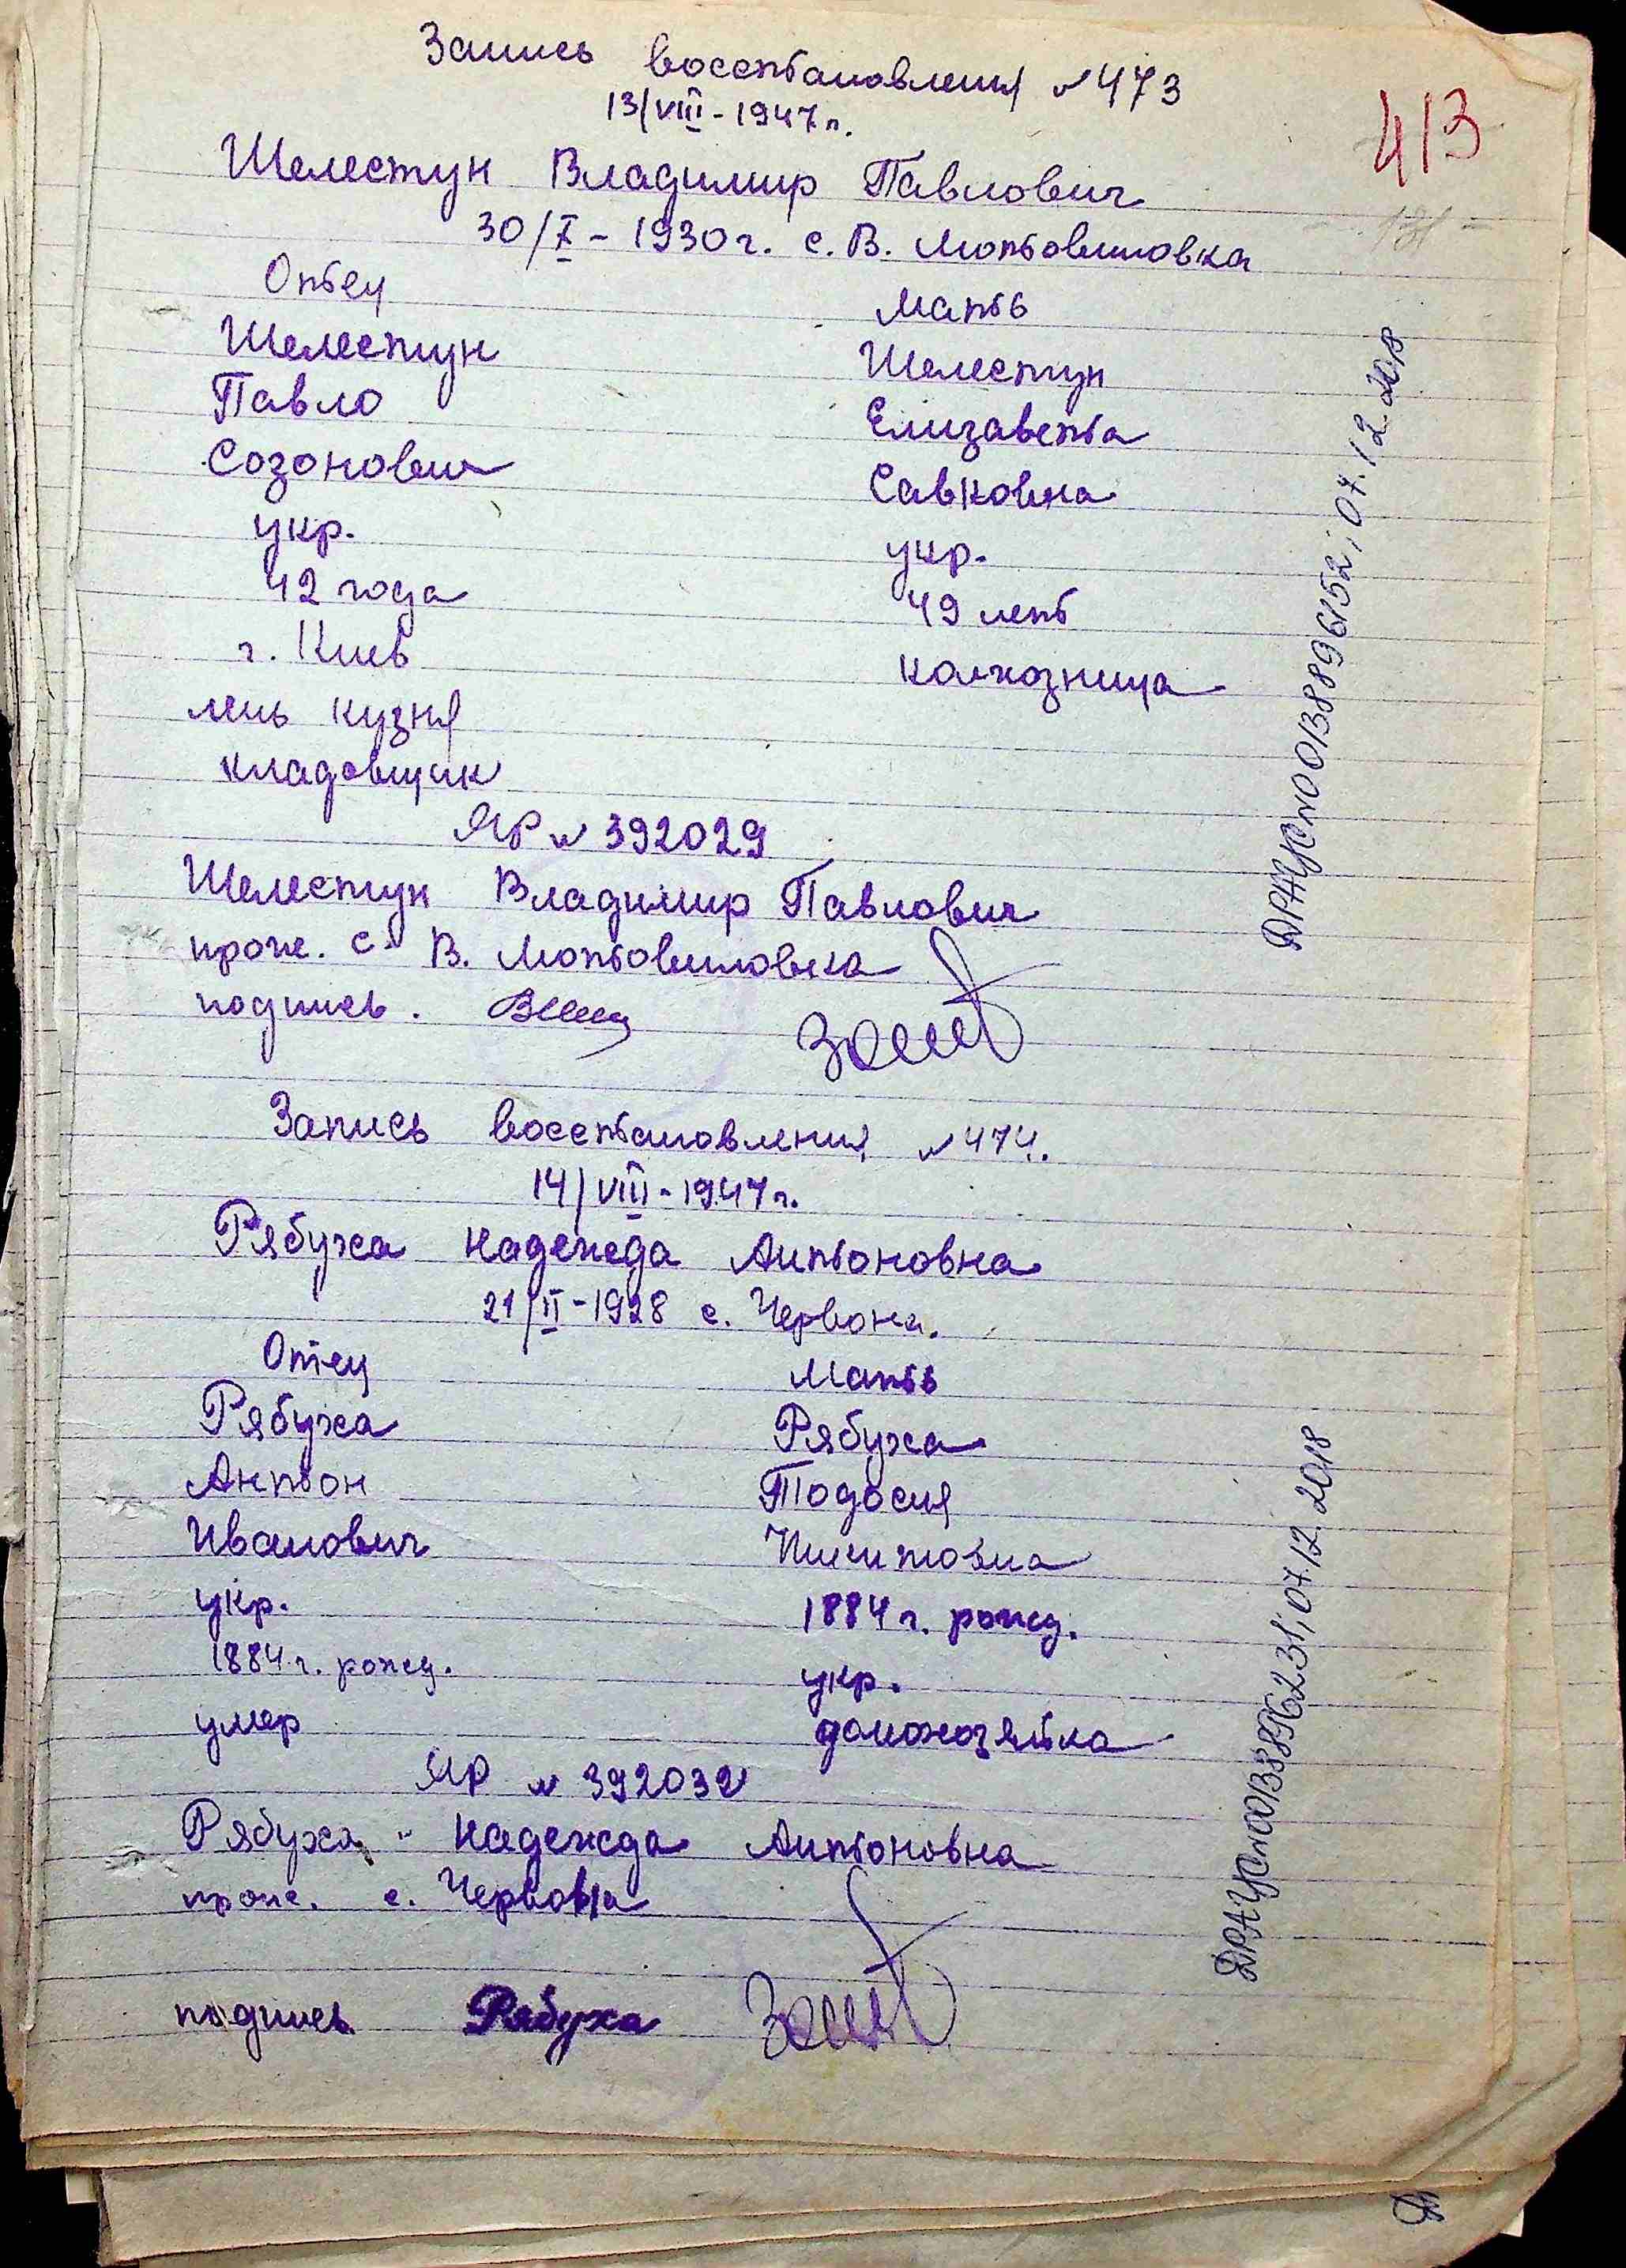 Запись восстановления № 473
413
13/VIII - 1947 г.
Шелестун Владимир Павлович
30/X - 1930 г. с. В. Мотовиловка
131
Отец
Мать
Шелестун
Шелестун
Павло
Елизавета
Созонович
Савковна
укр.
укр.
42 года
49 лет
г. Киев
колхозница
лень кузня
кладовщик
ЯР № 392029
Шелестун Владимир Павлович
прож. с. В. Мотовиловка
подпись.
ДРАЦС № 00138896152; 07.12.2018
Запись восстановления № 474.
14/VIII - 1947 г.
Рябуха Надежда Антоновна
21/II - 1928 с. Червона.
Отец
Мать
Рябуха
Рябуха
Антон
Тодосия
Иванович
Никитовна
укр.
1884 г. рожд.
1884 г. рожд.
укр.
умер
домохозяйка
ЯР № 392032
Рябуха Надежда Антоновна
прож. с. Червона
подпись Рябуха
ДРАЦС № 00138896231; 07.12.2018